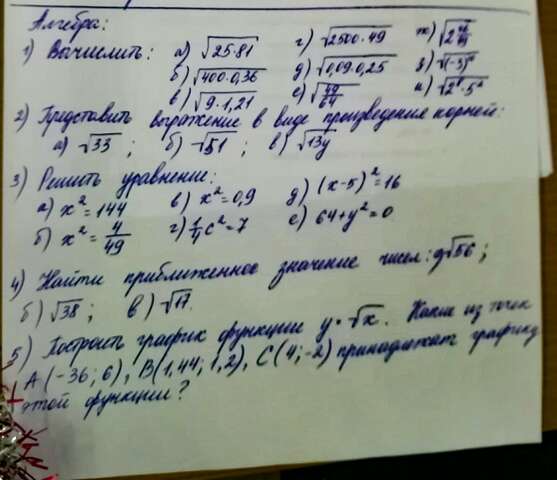 Алгебра:
1) Вычислить: а) √25·81 г) √2500·49 ж) √2
б) √400·0,36 д) √0,09·0,25 з) √(-3)⁴
в) √9·1,21 е) √49/64 и) √2⁸·5²
2) Представить выражение в виде произведения корней:
а) √33; б) √51; в) √13y
3) Решить уравнение:
а) x²=144 в) x²=0,9 д) (x-5)²=16
б) x²=4/49 г) 1/4c²=7 е) 64+y²=0
4) Найти приближенное значение чисел: а) √56;
б) √38; в) √17.
5) Построить график функции y=√x. Какие из точек
A(-36; 6), B(1,44; 1,2), C(4; -2) принадлежат графику
этой функции?